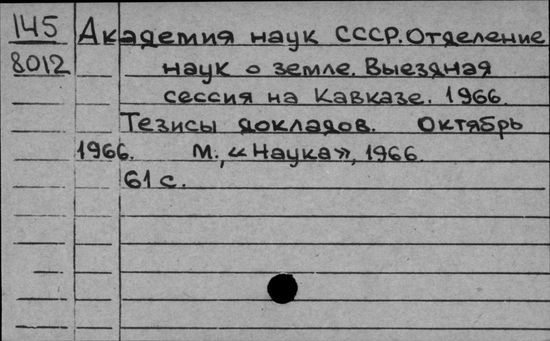 145 Академия наук СССР. Отделение
8012 наук о земле. Выездная
сессия на Кавказе. 1966.
Тезисы докладов. Октябрь
1966. М., «Наука», 1966.
61 с.